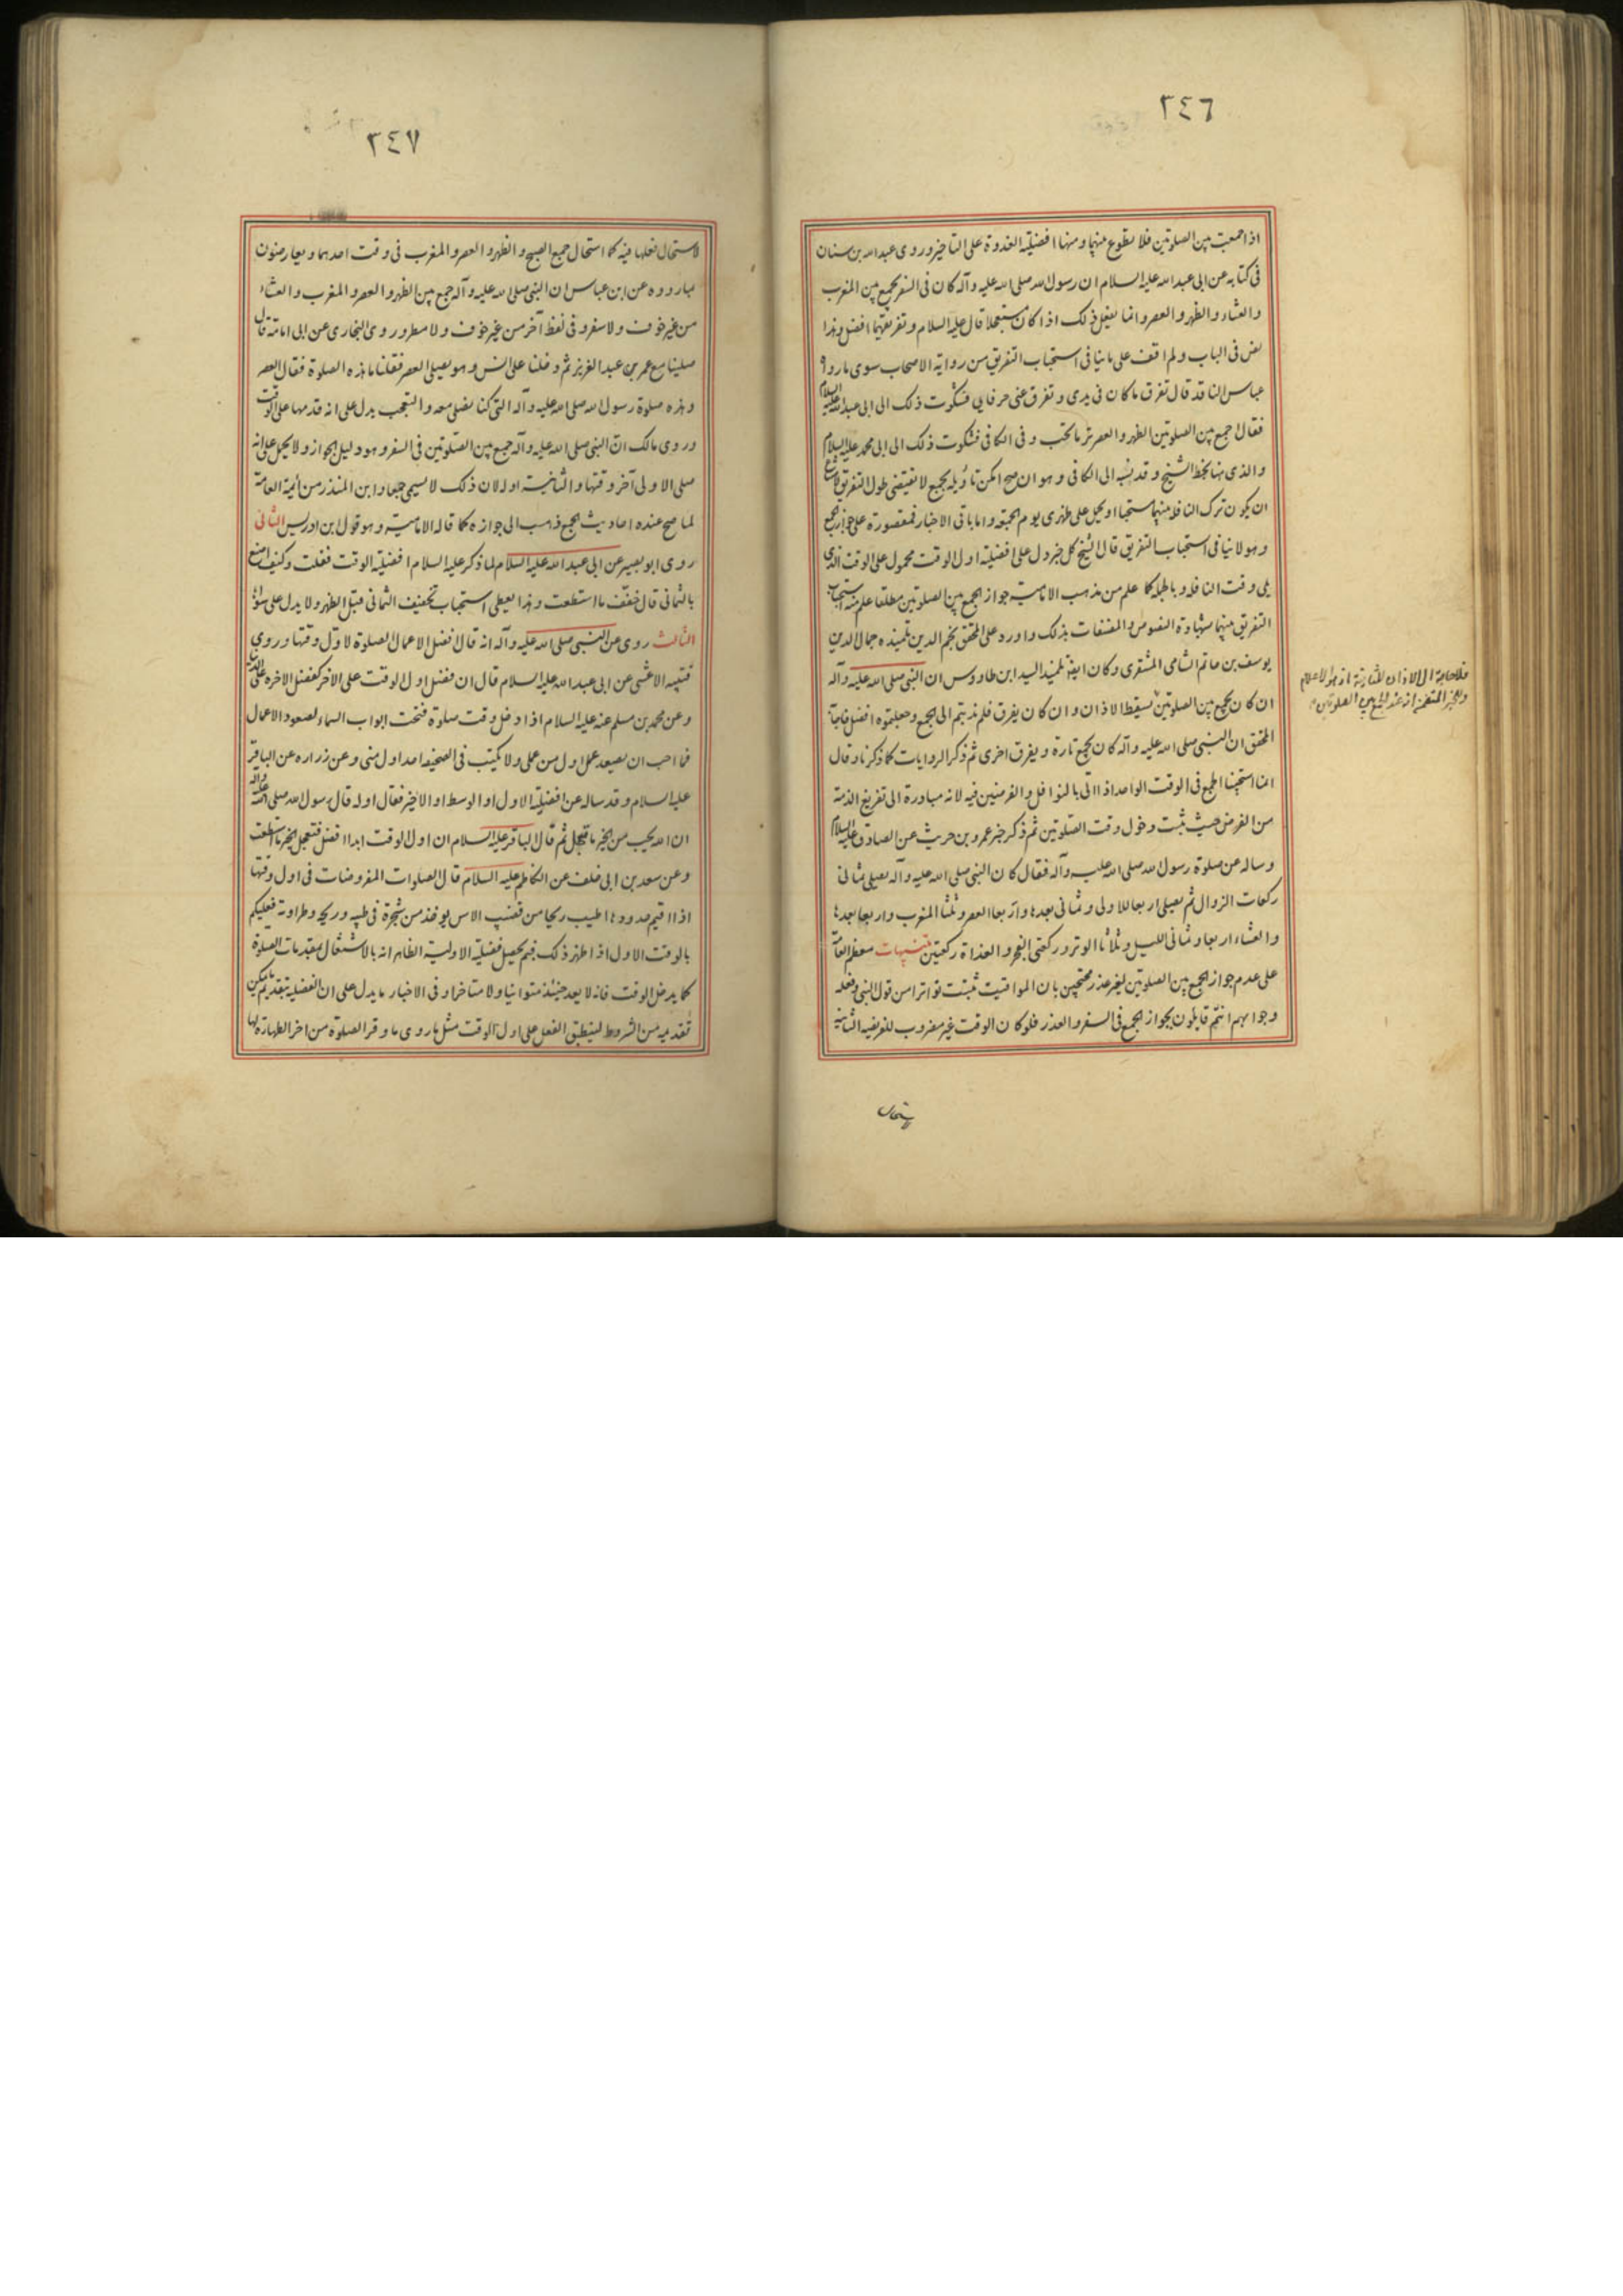 ٣٤٦
اذا جمعت بين الصلوتين فلا تطوع بينهما ومنها افضلية القدوة على التاخير وروى عبدالله بن سنان
فى كتابه عن ابى عبدالله عليه السلام ان رسول الله صلى الله عليه وآله كان فى السفر يجمع بين المغرب
والعشاء والظهر والعصر وانما يفعل ذلك اذا كان مستعجلا قال عليه السلام وتفريقهما افضل وهذا
نص فى الباب ولم اقف على ما ينافى استحباب التفريق من رواية الاصحاب سوى ما رواه
عباس الناقد قال تفرق ما كان فى يدى وتفرق عنى حرفايى فشكوت ذلك الى ابى عبدالله عليه السلام
فقال اجمع بين الصلوتين الظهر والعصر تر ما تحب وفى الكافى فشكوت ذلك الى ابى محمد عليه السلام
والذى هنا بخط الشيخ وقد نسبه الى الكافى وهو ان صح امكن تاويله بجمع لا يقتضى طول التفريق لامتناع
ان يكون ترك النافلة بينهما مستحبا او يحمل على ظهرى يوم الجمعة واما باقى الاخبار فمقصورة على جواز الجمع
وهو لا ينافى استحباب التفريق قال الشيخ كل خبر دل على افضلية اول الوقت محمول على الوقت الذى
يلى وقت النافلة وبالجملة كما علم من مذهب الامامية جواز الجمع بين الصلوتين مطلقا علم منه استحباب
التفريق بينهما بشهادة النصوص والمصنفات بذلك واورد على المحقق نجم الدين تلميذه جمال الدين
يوسف بن حاتم الشامى المشغرى وكان ايضا تلميذ السيد ابن طاووس ان النبى صلى الله عليه وآله
ان كان يجمع بين الصلوتين يسقط الاذان وان كان يفرق فلم ندبتم الى الجمع وجعلتموه افضل فاجابه
المحقق ان النبى صلى الله عليه وآله كان يجمع تارة ويفرق اخرى ثم ذكر الروايات كما ذكرنا وقال
انما استحببنا الجمع فى الوقت الواحد اذا اتى بالنوافل والفرضين فيه لانه مبادرة الى تفريغ الذمة
من الفرض حيث ثبت دخول وقت الصلوتين ثم ذكر خبر عمرو بن حريث عن الصادق عليه السلام
وساله عن صلوة رسول الله صلى الله عليه وآله فقال كان النبى صلى الله عليه وآله يصلى ثمانى
ركعات الزوال ثم يصلى اربعا للاولى وثمانى بعدها واربعا العصر وثلثا المغرب واربعا بعدها
والعشاء اربعا وثمانى الليل وثلاثا الوتر وركعتى الفجر والغداة ركعتين تنبيهات معظم العامة
على عدم جواز الجمع بين الصلوتين لغير عذر محتجين بان المواقيت ثبتت تواترا من قول النبى وفعله
وجوابهم انتم قايلون بجواز الجمع فى السفر والعذر فلو كان الوقت غير مضروب للفريضة الثانية
لاستحال
فلا حاجة الى الاذان للثانية اذ هو للاعلام
وللخبر المتضمن انه عند الجمع بين الصلوتين
٣٤٧
لاستحال فعلها فيه كما استحال جمع الصبح والظهر والعصر والمغرب فى وقت احدهما ويعارضون
بما رووه عن ابن عباس ان النبى صلى الله عليه وآله جمع بين الظهر والعصر والمغرب والعشاء
من غير خوف ولا سفر وفى لفظ آخر من غير خوف ولا مطر وروى البخارى عن ابى امامة قال
صلينا مع عمر بن عبد العزيز ثم دخلنا على انس وهو يصلى العصر فقلنا ما هذه الصلوة فقال العصر
وهذه صلوة رسول الله صلى الله عليه وآله التى كنا نصلى معه والتعجب يدل على انه قدمها على الوقت
وروى مالك ان النبى صلى الله عليه وآله جمع بين الصلوتين فى السفر وهو دليل الجواز ولا يحمل على انه
صلى الاولى آخر وقتها والثانية اوله لان ذلك لا يسمى جمعا وابن المنذر من ائمة العامة
لما صح عنده احاديث الجمع ذهب الى جوازه كما قاله الامامية وهو قول ابن ادريس الثانى
روى ابو بصير عن ابى عبدالله عليه السلام لما ذكر عليه السلام افضلية الوقت فقلت وكيف اصنع
بالثمانى قال خفف ما استطعت وهذا يعطى استحباب تخفيف الثمانى قبل الظهر ولا يدل على سواه
الثالث روى عن النبى صلى الله عليه وآله انه قال افضل الاعمال الصلوة لاول وقتها وروى
قتيبة الاعشى عن ابى عبدالله عليه السلام قال ان فضل اول الوقت على الآخر كفضل الآخرة على الدنيا
وعن محمد بن مسلم عنه عليه السلام اذا دخل وقت صلوة فتحت ابواب السماء لصعود الاعمال
فما احب ان يصعد عمل اول من عملى ولا يكتب فى الصحيفة احد اول منى وعن زراره عن الباقر
عليه السلام وقد ساله عن افضلية الاول او الوسط او الاخير فقال اوله قال رسول الله صلى الله عليه وآله
ان الله يحب من الخير ما يعجل ثم قال الباقر عليه السلام ان اول الوقت ابدا افضل فتعجل الخير ما استطعت
وعن سعد بن ابى خلف عن الكاظم عليه السلام قال الصلوات المفروضات فى اول وقتها
اذا اقيم حدودها اطيب ريحا من قضيب الاس يوخذ من شجرة فى طيبه وريحه وطراوته فعليكم
بالوقت الاول اذا ظهر ذلك فبم يحصل فضيلة الاولية الظاهر انه بالاشتغال بمقدمات الصلوة
كما يدخل الوقت فانه لا يعد حينئذ متوانيا ولا متاخرا وفى الاخبار ما يدل على ان الفضيلة بتقديم ما يمكن
تقديمه من الشروط لينطبق الفعل على اول الوقت مثل ما روى ما وقر الصلوة من اخر الطهارة لها